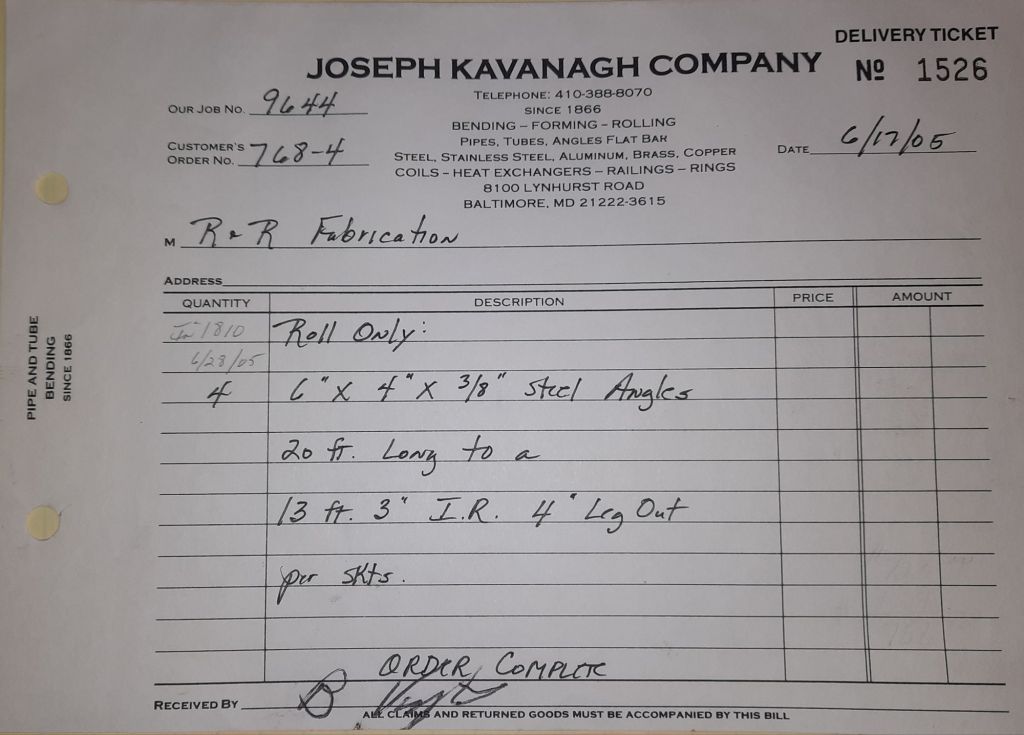 DELIVERY TICKET
JOSEPH KAVANAGH COMPANY
Nº 1526
TELEPHONE: 410-388-8070
SINCE 1866
OUR JOB NO. 9644
BENDING – FORMING – ROLLING
PIPES, TUBES, ANGLES FLAT BAR
CUSTOMER'S ORDER NO. 768-4
DATE 6/17/05
STEEL, STAINLESS STEEL, ALUMINUM, BRASS, COPPER
COILS – HEAT EXCHANGERS – RAILINGS – RINGS
8100 LYNHURST ROAD
BALTIMORE, MD 21222-3615
M R & R Fabrication
ADDRESS
QUANTITY DESCRIPTION PRICE AMOUNT
1810 Roll Only:
6/28/05
4 6" X 4" X 3/8" Steel Angles
20 ft. Long to a
13 ft. 3" I.R. 4" Leg Out
per skts.
ORDER COMPLETE
RECEIVED BY
ALL CLAIMS AND RETURNED GOODS MUST BE ACCOMPANIED BY THIS BILL
PIPE AND TUBE
BENDING
SINCE 1866